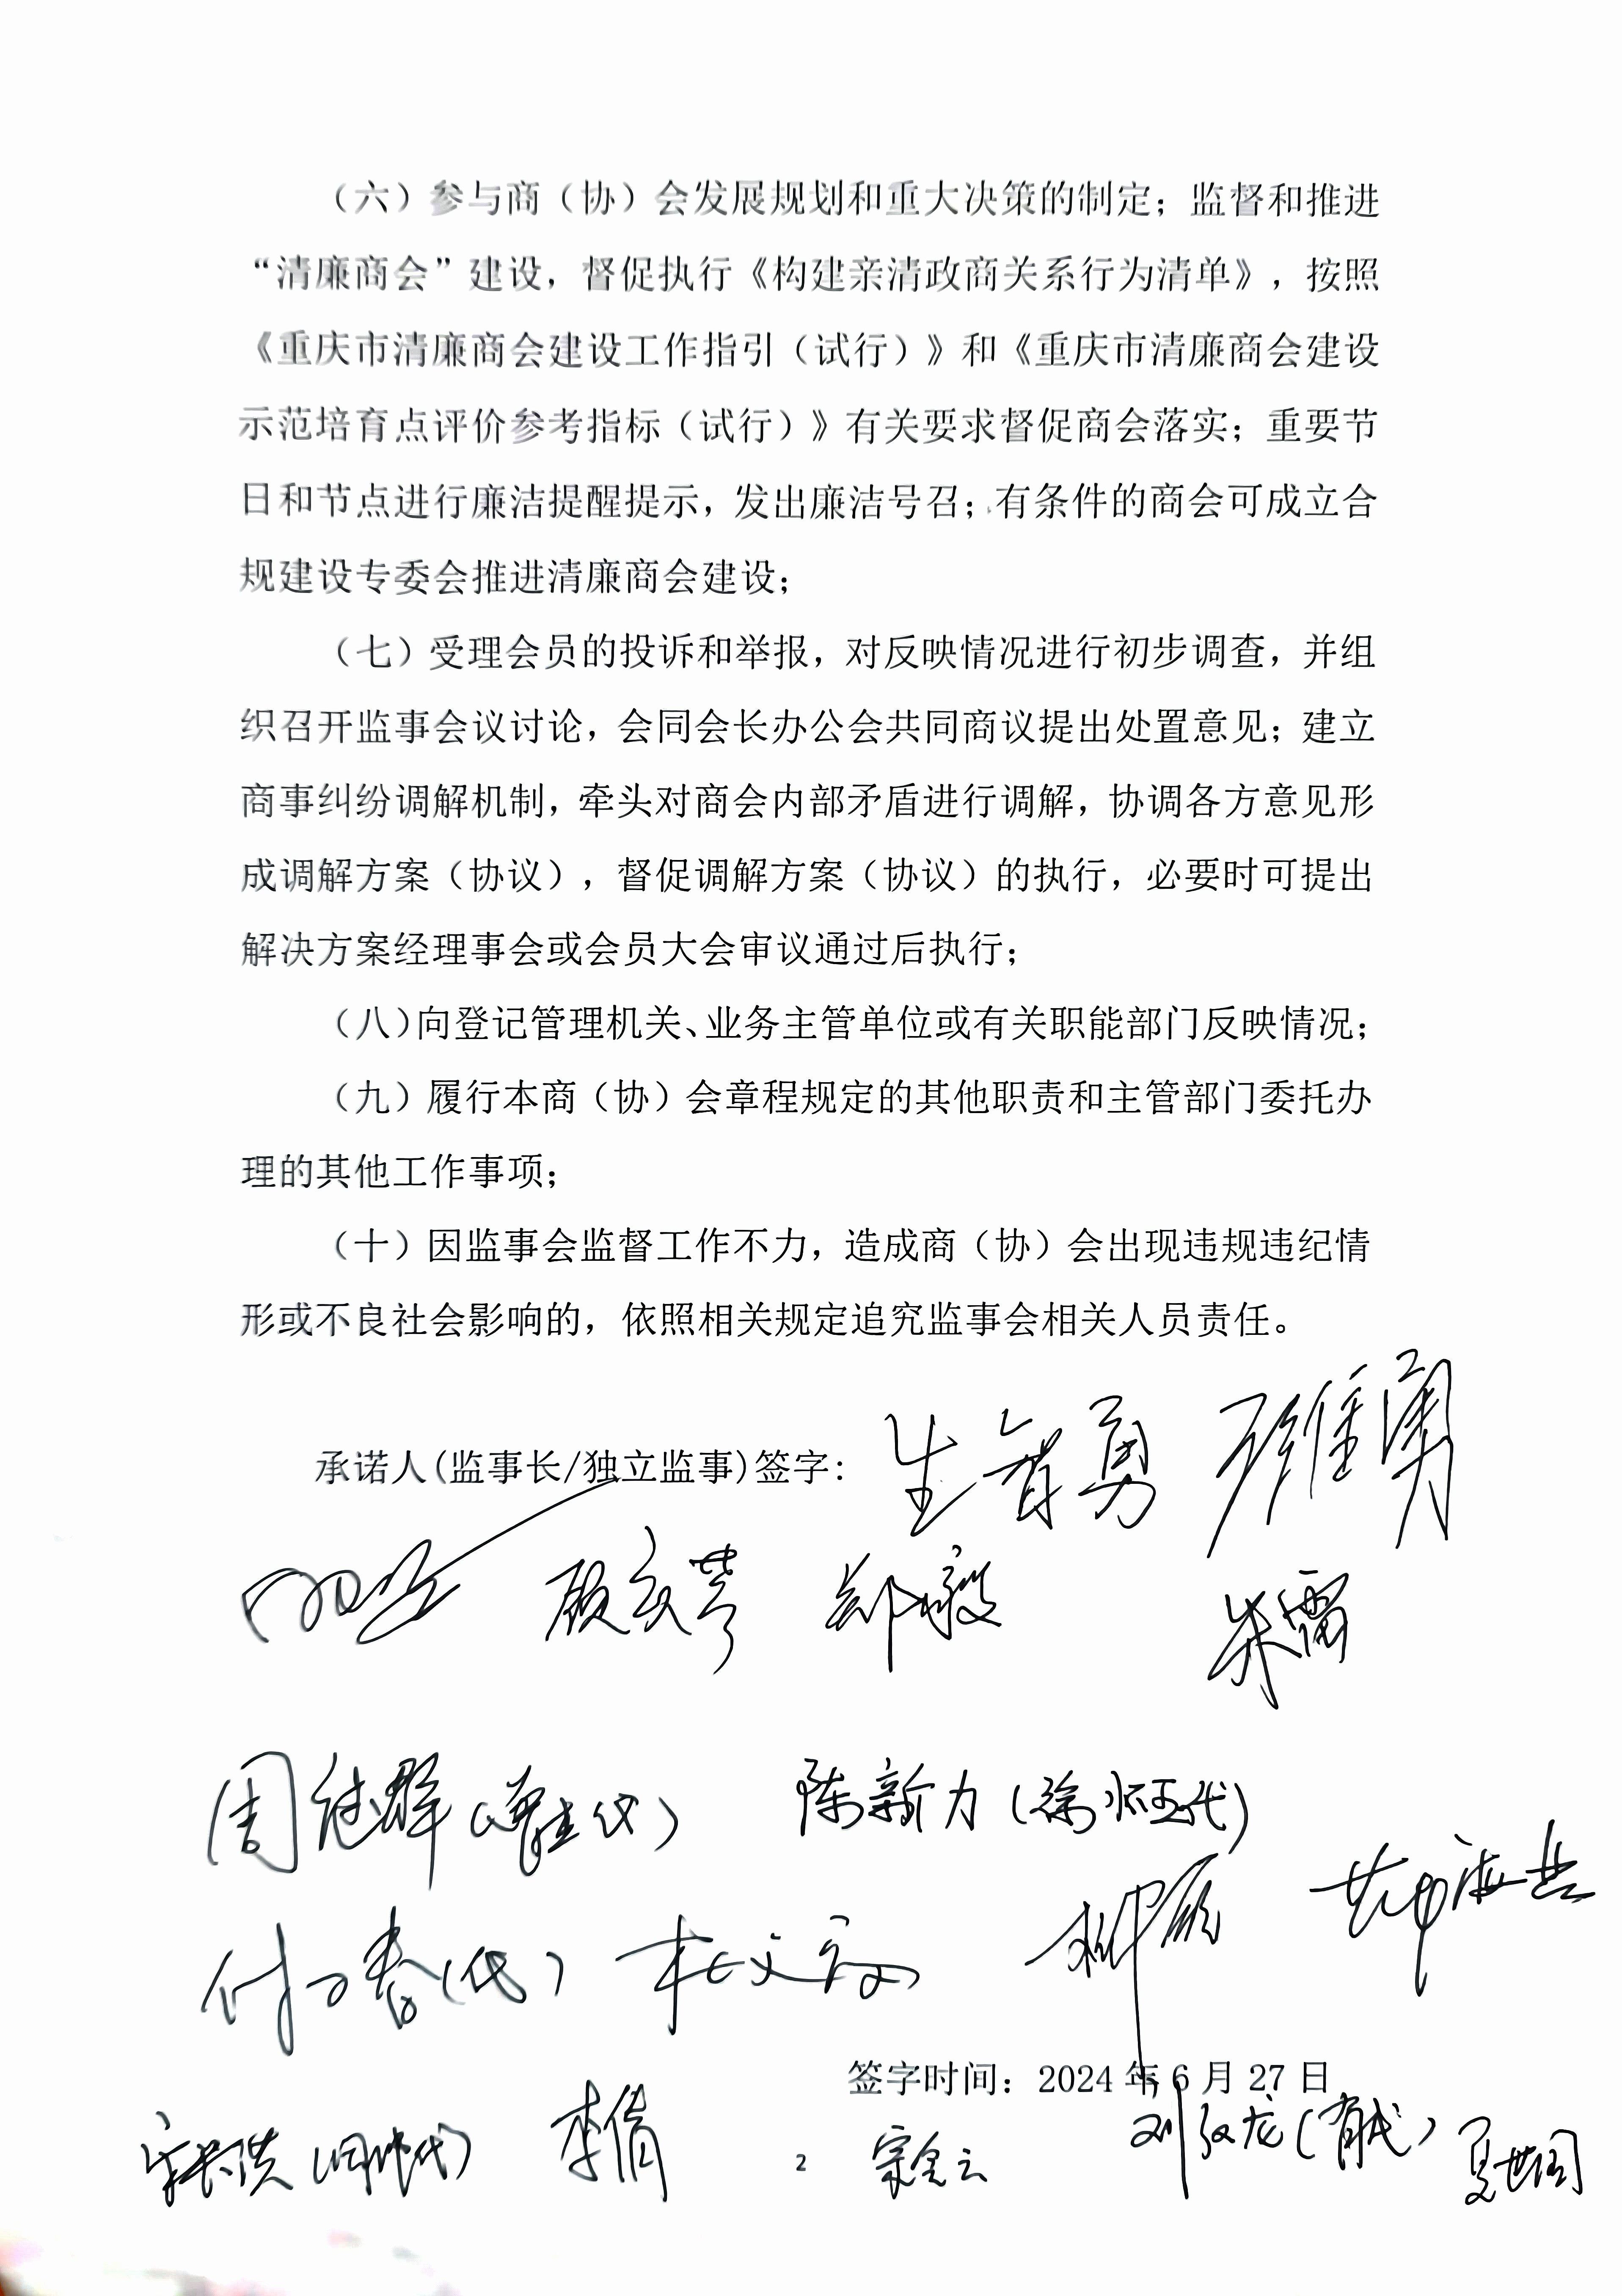 （六）参与商（协）会发展规划和重大决策的制定；监督和推进
“清廉商会”建设，督促执行《构建亲清政商关系行为清单》，按照
《重庆市清廉商会建设工作指引（试行）》和《重庆市清廉商会建设
示范培育点评价参考指标（试行）》有关要求督促商会落实；重要节
日和节点进行廉洁提醒提示，发出廉洁号召；有条件的商会可成立合
规建设专委会推进清廉商会建设；
（七）受理会员的投诉和举报，对反映情况进行初步调查，并组
织召开监事会议讨论，会同会长办公会共同商议提出处置意见；建立
商事纠纷调解机制，牵头对商会内部矛盾进行调解，协调各方意见形
成调解方案（协议），督促调解方案（协议）的执行，必要时可提出
解决方案经理事会或会员大会审议通过后执行；
（八）向登记管理机关、业务主管单位或有关职能部门反映情况；
（九）履行本商（协）会章程规定的其他职责和主管部门委托办
理的其他工作事项；
（十）因监事会监督工作不力，造成商（协）会出现违规违纪情
形或不良社会影响的，依照相关规定追究监事会相关人员责任。
承诺人(监事长/独立监事)签字：生智勇
郑毅 朱雷
陈新力（徐怀玉代）
签字时间：2024 年 6 月 27 日
李倩 2 宗金云